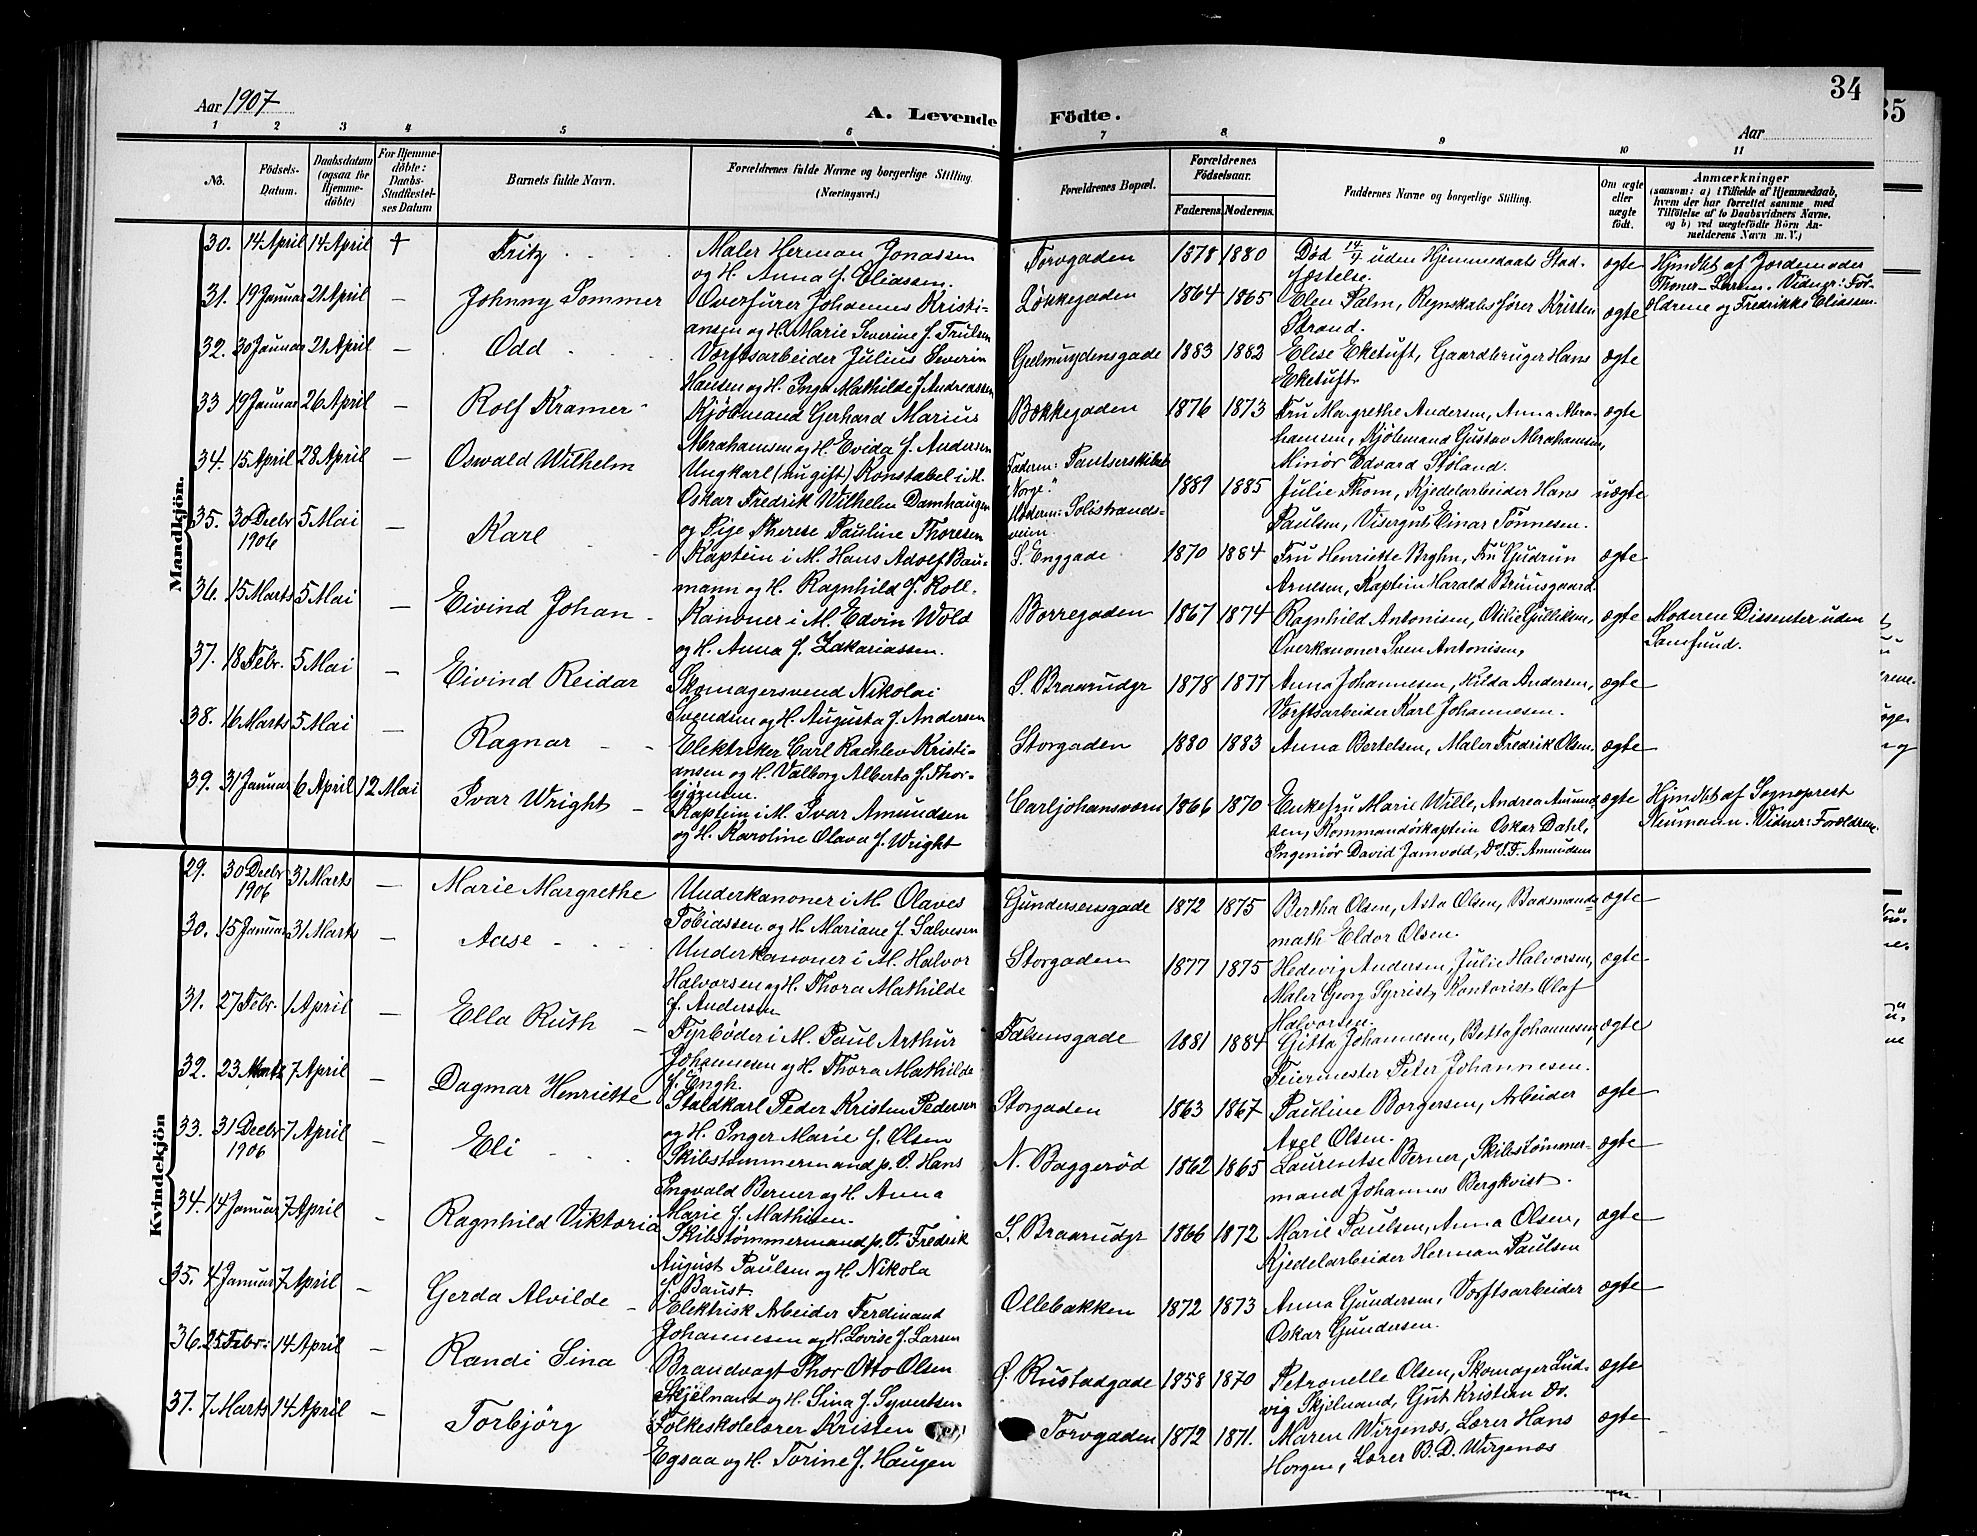 34
35
Aar 1907
A. Levende Födte.
Aar
1 2 3 4 5 6 7 8 9 10 11
No.
Födsels-Datum.
Daabsdatum (ogsaa för Hjemme-döbte)
For Hjemme-döbte: Daabs-Stadfæstel-ses Datum
Barnets fulde Navn.
Forældrenes fulde Navne og borgerlige Stilling. (Næringsvei.)
Forældrenes Bopæl.
Forældrenes Födselsaar.
Faderens. Moderens.
Faddernes Navne og borgerlige Stilling.
Om ægte eller uægte födt.
Anmærkninger
(saasom: a) i Tilfælde af Hjemmedaab,
hvem der har forrettet samme med
Tilföielse af to Daabsvidners Navne,
og b) ved uægtefödte Börn An-
melderens Navn m. V.)
Mandkjön.
30. 14 April 14 April + Fritz
Maler Herman Jonassen
og H. Anna f. Eliassen.
Torvgaden 1878 1880
Död 14/4 uden Hjemmedaabs Stad-
fæstelse.
ægte
Hjmdbt af Jordemoder
Thoner-Larsen. Vidner: For-
ældrene og Fredrikke Eliassen.
31. 19 Januar 21 April — Johnny Sommer
Overfurer Johannes Kristi-
ansen og H. Marie Severine f. Trulsen
Løkkegaden 1864 1865
Elen Palm, Regnskabsfører Kristen
Strand.
ægte
32. 30 Januar 21 April — Odd
Værftsarbeider Julius Severin
Hansen og H. Inga Mathilde f. Andreassen
Gulmuydensgade 1883 1882
Elise Eketuft, Gaardbruger Hans
Eketuft
ægte
33 19 Januar 26 April — Rolf Kramer
Kjöbmand Gerhard Marius
Abrahamsen og H. Evida f. Andersen
Bækkegaden 1876 1873
Fru Margrethe Andersen, Anna Abra-
hamsen, Kjöbmand Gustav Abrahamsen,
Minör Edvard Støland.
ægte
34. 15 April 28 April — Oswald Wilhelm
Ungkarl (nu gift) Konstabel i M.
Oskar Fredrik Wilhelm Damhaugen
og Pige Therese Pauline Thoresen
Faderen: Pantserskibet
"Norge."
Moderen: Solistrands-
veien.
1881 1885
Julie Thom, Kjedelarbeider Hans
Paulsen, Visergut Einar Tönnesen.
uægte
35. 30 Decbr 1906 5 Mai — Karl
Kaptein i M. Hans Adolf Bau-
mann og H. Ragnhild f. Roll.
S. Enggade 1870 1884
Fru Henriette Bryhn, Fru Gudrun
Arnesen, Kaptein Harald Bruusgaard.
ægte
36. 15 Marts 5 Mai — Eivind Johan
Kanoner i M. Edvin Wold
og H. Anna f. Zakariassen.
Borregaden 1867 1874
Ragnhild Antonisen, Otilie Gulliksen,
Overkanoner Sven Antonisen,
ægte
Moderen Dissenter uden
Samfund.
37. 18 Febr. 5 Mai — Eivind Reidar
Skomagersvend Nikolai
Svendsen og H. Augusta f. Andersen
S. Braarudgr 1878 1877
Anna Johannesen, Hilda Andersen,
Værftsarbeider Karl Johannesen.
ægte
38. 16 Marts 5 Mai — Ragnar
Elektriker Carl Rachlev Kristi-
ansen og H. Valborg Alberta f. Thor-
björnsen.
Storgaden 1880 1883
Anna Bertelsen, Maler Fredrik Olsen
ægte
39. 31 Januar 6 April 12 Mai Ivar Wright
Kaptein i M. Ivar Amundsen
og H. Karoline Olava f. Wright
Carljohansværn 1866 1870
Enkefru Marie Wille, Andrea Amund-
sen, Kommandörkaptein Oskar Dahl,
Ingeniör David Jamvold, D. T. F. Amundsen
ægte
Hjmdbt af Sogneprest
Neumann. Vidner: Forældrene.
Kvindekjön
29. 30 Decbr 1906 31 Marts — Marie Margrethe
Underkanoner i M. Olaves
Tobiassen og H. Mariane f. Salvesen
Gundersensgade 1872 1875
Bertha Olsen, Asta Olsen, Baadsmands-
math Eldor Olsen.
ægte
30. 15 Januar 31 Marts — Aase
Underkanoner i M. Halvor
Halvorsen og H. Thora Mathilde
f. Andersen
Storgaden 1877 1875
Hedevig Andersen, Julie Halvorsen,
Maler Georg Syrrist, Kontorist Olaf
Halvorsen.
ægte
31. 27 Febr. 1 April — Ella Ruth
Fyrböder i M. Paul Arthur
Johannesen og H. Thora Mathilde
f. Engh.
Falsensgade 1881 1884
Gitta Johannesen, Betta Johannesen,
Feiermester Peter Johannesen.
ægte
32. 23 Marts 7 April — Dagmar Henriette
Staldkarl Peder Kristen Pedersen
og H. Inger Marie f. Olsen
Storgaden 1863 1867
Pauline Borgersen, Arbeider
Axel Olsen.
ægte
33. 31 Decbr 1906 7 April — Eli
Skibstömmermand p. V. Hans
Ingvald Berner og H. Anna
Marie f. Mathisen.
N. Baggeröd 1862 1865
Laurentse Berner, Skibstömmer-
mand Johannes Bergkvist.
ægte
34. 14 Januar 7 April — Ragnhild Viktoria
Skibstömmermand p. V. Fredrik
August Paulsen og H. Nikola
f. Baust.
S. Braarudgr 1866 1872
Marie Paulsen, Anna Olsen,
Kjedelarbeider Herman Paulsen
ægte
35. 4 Januar 7 April — Gerda Alvilde
Elektrisk Arbeider Ferdinand
Johannesen og H. Lovise f. Larsen
Ollebakken 1872 1873
Anna Gundersen, Værftsarbeider
Oskar Gundersen.
ægte
36. 25 Febr. 14 April — Randi Sina
Brandvagt Thor Otto Olsen
Skjelnand og H. Sina f. Syvertsen
Ø. Rustadgade 1858 1870
Petronelle Olsen, Skomager Lud-
vig Skjelnand, Gut Kristian Do.
ægte
37. 7 Marts 14 April — Torbjörg
Folkeskolelærer Kristen
Egsaa og H. Torine f. Haugen
Torvgaden 1872 1871.
Maren Wirgenæs, Lærer Hans
Horgen, Lærer B. D. Wirgenæs
ægte